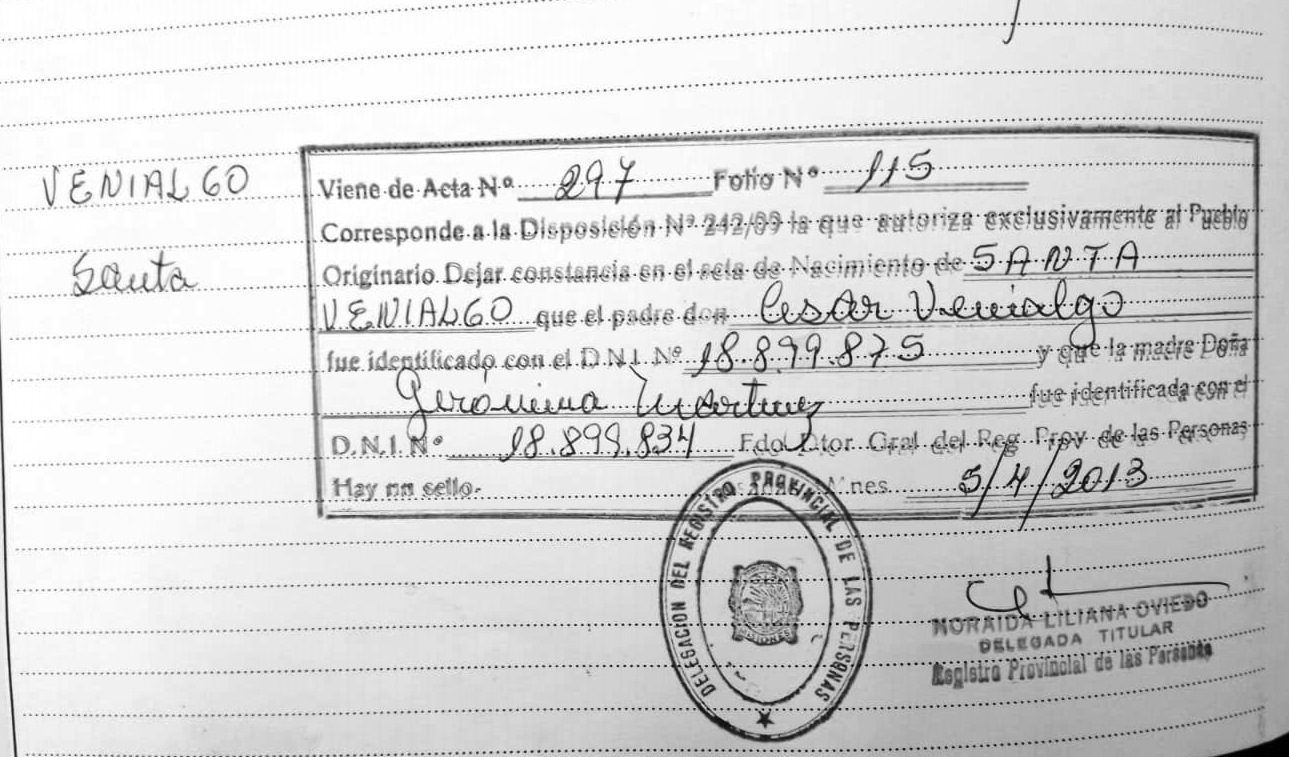 VENIALGO
Santa
Viene de Acta Nº 297 Folio Nº 115
Corresponde a la Disposición Nº 242/09 la que autoriza exclusivamente al Pueblo
Originario Dejar constancia en el acta de Nacimiento de SANTA
VENIALGO que el padre don Cesar Venialgo
fue identificado con el D.N.I. Nº 18.899.875 y que la madre Doña
Gerónima Martinez fue identificada con el
D.N.I. Nº 18.899.834 Fdo Dtor. Gral del Reg. Prov de las Personas
Hay un sello. Mnes 5/4/2013
DELEGACION DEL REGISTRO PROVINCIAL DE LAS PERSONAS
MISIONES
NORAIDA LILIANA OVIEDO
DELEGADA TITULAR
Registro Provincial de las Personas